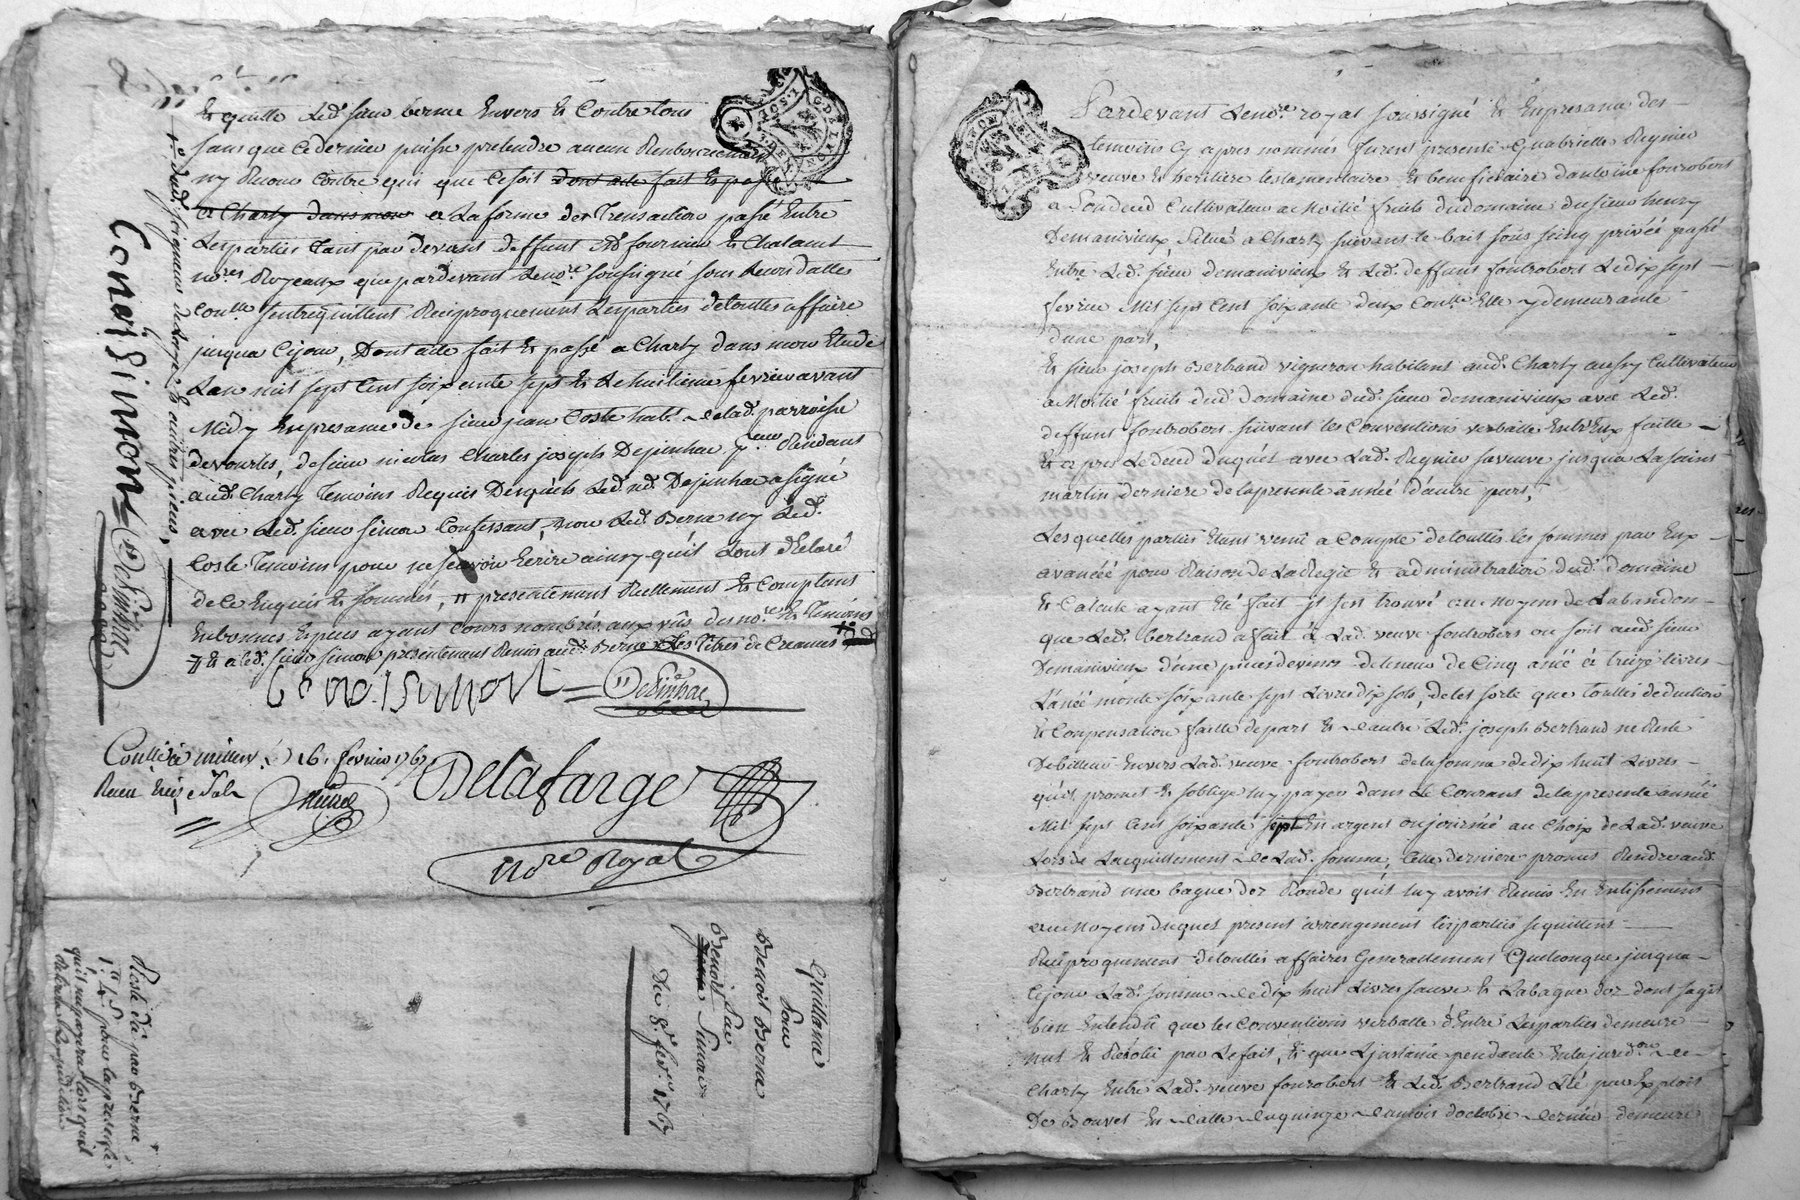 Et quitte led. sieur berne Envers Et Contre tous
sans que Ce dernier puisse pretendre aucun Renboursement
ny Recour Contre qui que Ce soit dont acte fait Et passé
a Charly dans mon a La forme de Transaction passé Entre
Les parties tant par devant deffunt Fournier Et Chalamet
no.res Royeaux que pardevant Le no.re soussigné sous Leurs dattes
Con.lle sentrequittent Reciproquement Les parties de touttes affaire
jusqua Cejour, Dont acte fait Et passé a Charly dans mon Etude
Lan mil sept Cent soixante sept Et Le huitieme fevrier avant
Midy En presance de sieur jean Coste hab.t de lad. parroisse
de vourles, de sieur nicolas Charles joseph Depinhac Residant
aud. Charly Temoins Requis Desquels Led. Depinhac a signé
avec Led. sieur simon Confessant, non Led. Berne ny Led.
Coste Temoins pour ne sçavoir Ecrire ainsy quil Lont declaré
de Ce Enquis Et sommés, presentement Reellement Et Comptant
En bonnes Especes ayant Cours nombrés aux vüs des no.res Et Temoins
Et a led. sieur simon presentement Remis aud. Berne Les Titres de Creances
Benoi Simon Depinhac
Conllé a millery Le 16. fevrier 1767
Recu treise sols
Delafarge
no.re Royal
Benoi Simon Depinhac
Quittance
Pour
Benoit Berne
Par
Benoit Simon
Du 8.e fev.r 1767
Reste dû par Berne
pour la presente
qu'il me payera lors quil
Pardevant Le no.re royal soussigné Et En presance des
temoins Cy apres nommés furent presente Gabrielle Regnier
veuve Et heritiere testamentaire Et beneficiaire dantoine fontrobert
a Son deced Cultivateur a Moitié fruits du domaine du sieur henry
Demanivieux Situé a Charly suivant le bail sous seing privée passé
Entre Led. sieur demanivieux Et Led. deffunt fontrobert Le dix sept
fevrier Mil sept Cent soixante deux Con.llé Elle y demeurante
dune part,
Et sieur joseph Bertrand vigneron habitant aud. Charly aussy Cultivateur
a Moitié fruits dud. domaine dud. sieur demanivieux avec Led.
deffunt fontrobert suivant les Conventions verballe Entr'Eux faitte
Et apres Le deced duquel avec Lad. Regnier sa veuve jusqua La saint
martin derniere de la presente année d'autre part,
Lesquelles parties Etant venü a Compte de touttes les sommes par Eux
avancéé pour Raison de La Regie Et administration dud. domaine
Et Calcule ayant Eté fait il sest trouvé au Moyens de Labandon
que Led. bertrand a fait a Lad. veuve fontrobert ou soit aud. sieur
Demanivieux d'une piece de vins de teneur de Cinq anée a treize Livres
L'anée monte soixante sept Livres dix sols, de tel sorte que touttes deductions
Et Compensation faitte de part Et dautre Led. joseph Bertrand ne Reste
Debitteur Envers Lad. veuve fontrobert de la somme de dix huit Livres
qu'il promet Et soblige luy payer dans Le Courant de la presente année
Mil sept Cent soixante sept En argent ou journée au Choix de Lad. veuve
Lors de Lacquittement de Lad. somme, Cette derniere promet Rendre aud.
Bertrand une bague dor Ronde quil luy avoit Remis En
au Moyens duquel present arrengement les parties se quittent
Reciproquement de touttes affaires Generallement Quelconque jusqua
Cejour Lad. somme de dix huit Livres sauve Et La bague dor dont sagit
bien Entendü que les Conventions verballe d'Entre Les parties demeure
nul Et Resolü par Le fait, Et que Linstance pendante En la jurid.on de
Charly Entre Lad. veuve fontrobert Et Led. Bertrand Lié par Exploit
De Bouvet En datte du quinze du mois doctobre dernier demeure